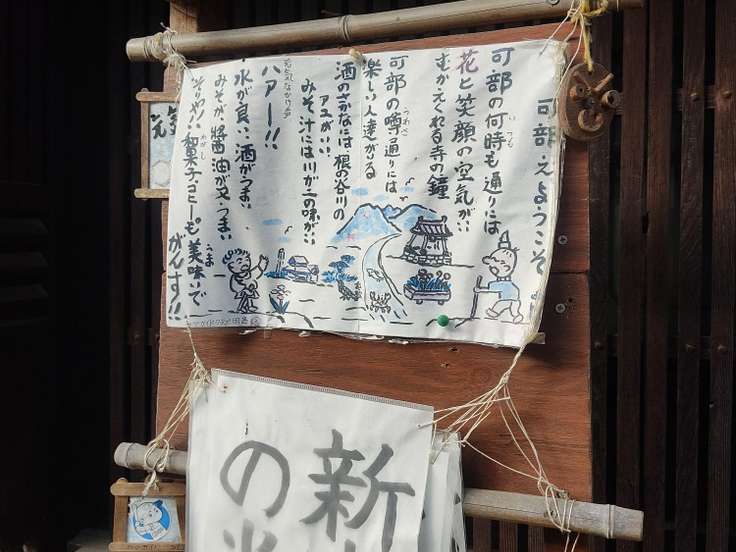 可部え ようこそ
可部の何時も通りには
いつも
花と笑顔の空気がい
むかえくれる寺の鐘
可部の噂通りには
うわさ
楽しい人達がいる
酒のさかなには根の谷川の
アユがいい
みそ汁には川が二の味がい
ハアー!!
水が良い、酒がうまい
みそが、醤油が又、つまい
そりゃ!!和菓子コヒーも美味いで
わがし
うま
がんす!!
新
の